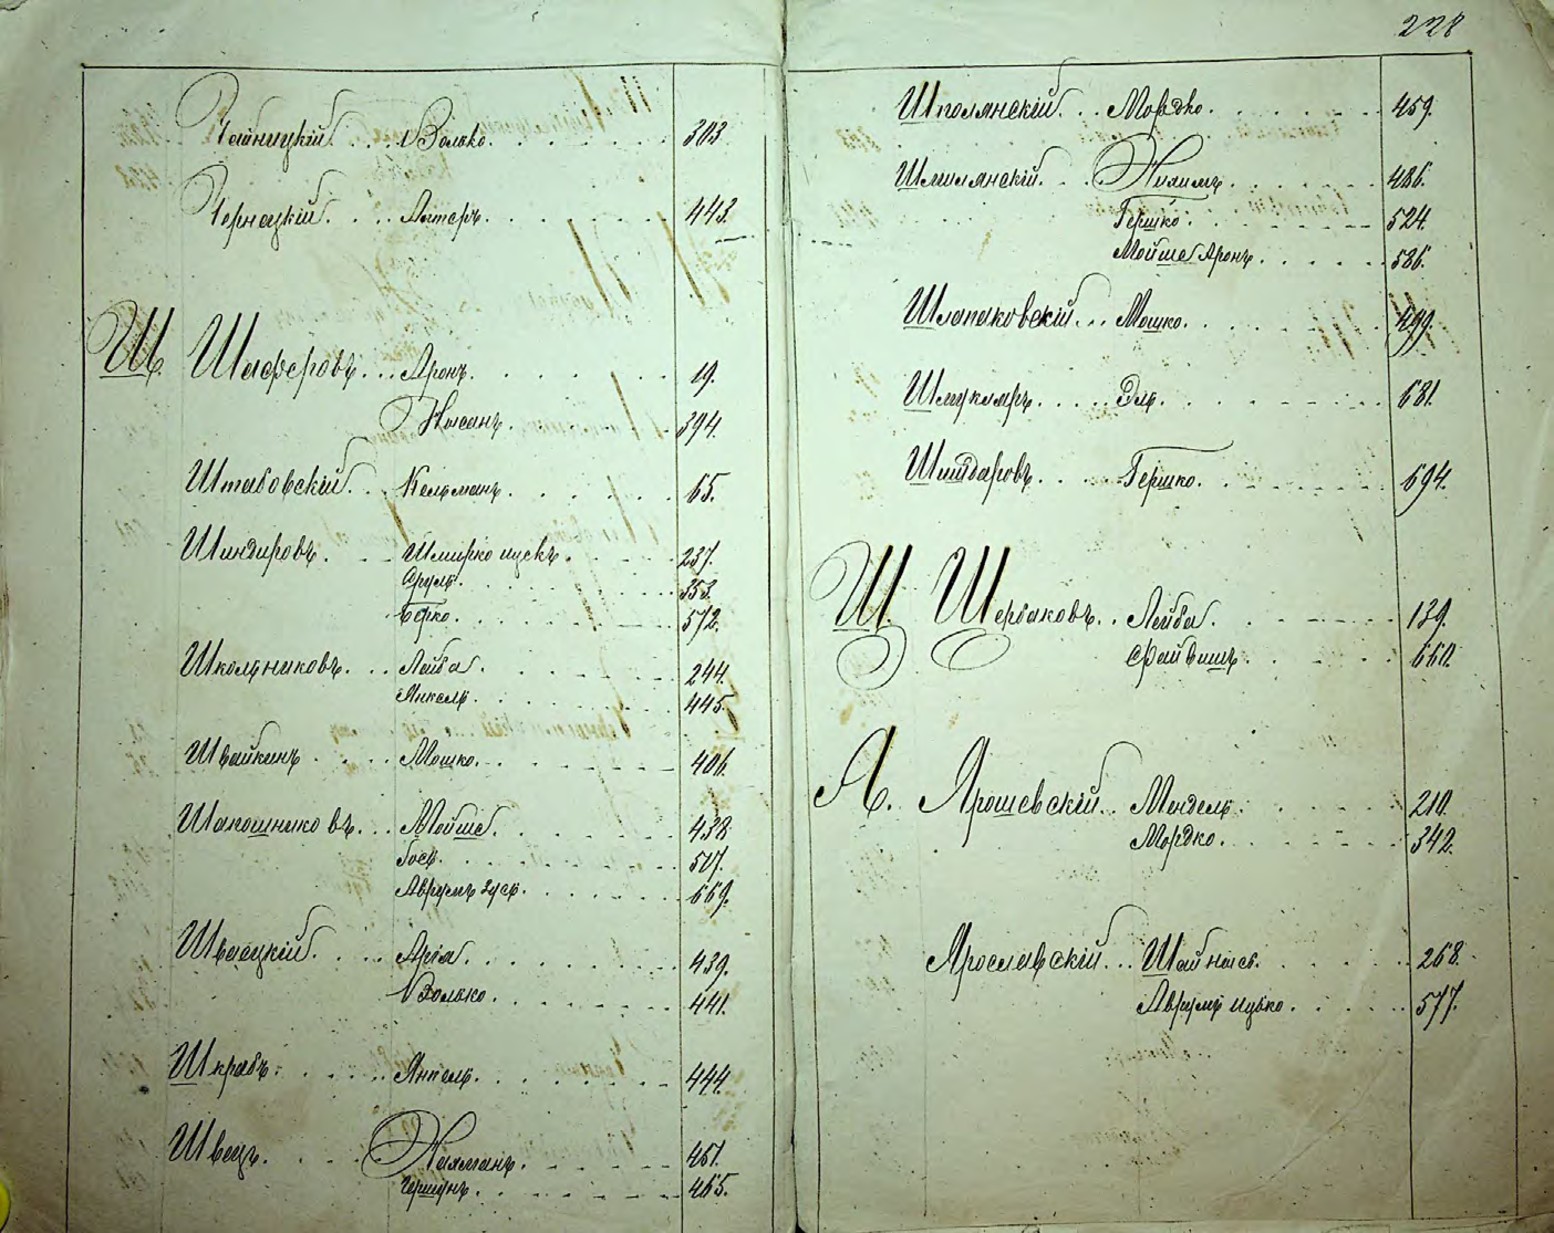 228
Чайницкій . . . Волько. 303.
Чернецкій . . . 443.
Ш. Шаферовъ . . . Аронъ. 19.
Носанъ. 394.
Штабовскій . . . Кельманъ. 65.
Шиндировъ. Шмирко ицекъ. 237.
Срулъ. 353.
Берко. 572.
Школьниковъ. . . Лейба. 244.
Янкель. 445.
Швайкинъ . . . Мошко. 406.
Шапошниковъ . . . Мойше. 438.
Іось. 507.
Аврумъ Зусь. 669.
Швецкій . . . Арія. 439.
Волько. 441.
Шкрабъ. . . . Янкель. 444.
Швецъ. . . . Нахманъ. 451.
Гершунъ. 465.
Шполянскій. . . Мордко. 459.
Шмилянскій. . . Нухимъ. 486.
Гершко. 524.
Мойше Аронъ. 586.
Шлапаковскій. . . Мошко. 499.
Шмукляръ. . . . Эль. 681.
Гершко. 694.
Щ. Щербаковъ. . Лейба. 139.
Файвишъ. 660.
Я. Ярошевскій. . Мендель. 210.
Мордко. 342.
Ярославскій. . . 268.
Аврумъ Ицько. 577.